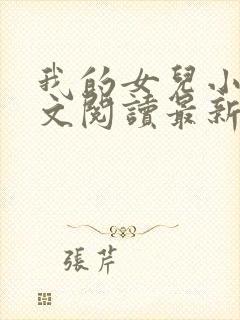 我的女兒小
文閱讀最新
張芹